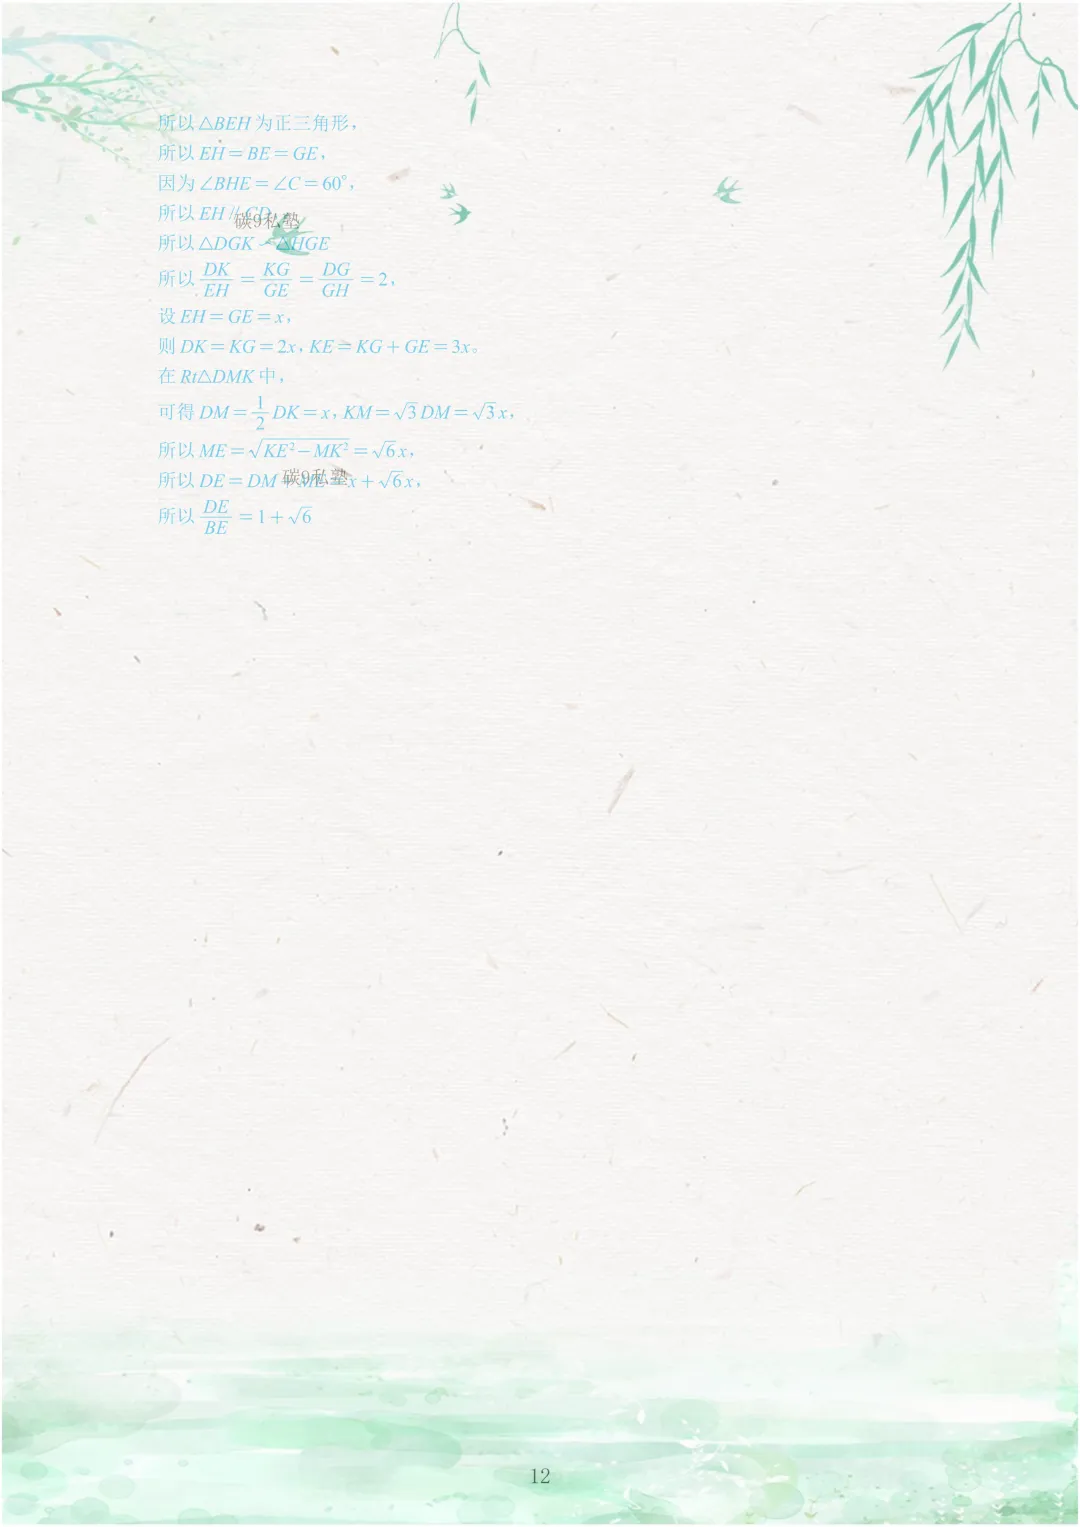 所以△BEH为正三角形，
所以EH＝BE＝GE，
因为∠BHE＝∠C＝60°，
所以EH∥CD
碳9私塾
所以△DGK∽△HGE
所以DK/EH＝KG/GE＝DG/GH＝2，
设EH＝GE＝x，
则DK＝KG＝2x，KE＝KG＋GE＝3x。
在Rt△DMK中，
可得DM＝1/2DK＝x，KM＝√3DM＝√3x，
所以ME＝√(KE²－MK²)＝√6x，
所以DE＝DM ME x＋√6x，
碳9私塾
所以DE/BE＝1＋√6
12